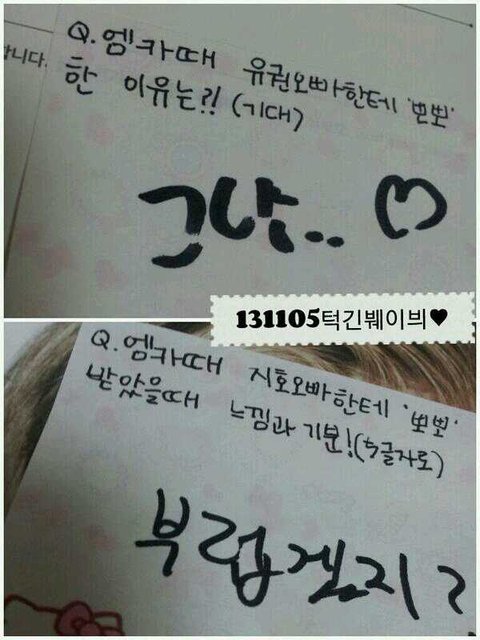 합니다.
Q. 엠카때 유권오빠한테 '뽀뽀'
한 이유는?! (기대)
그냥.. ♡
131105턱긴붸이븨♥
Q. 엠카때 지호오빠한테 '뽀뽀'
받았을때 느낌과 기분! (5글자로)
부럽겠지?